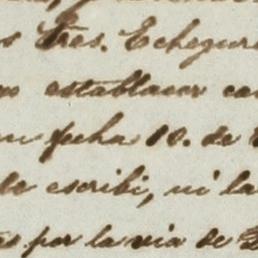 s Sres. Echegur
establecer ca
fecha 10. de
de escribi, ni la
por la via de